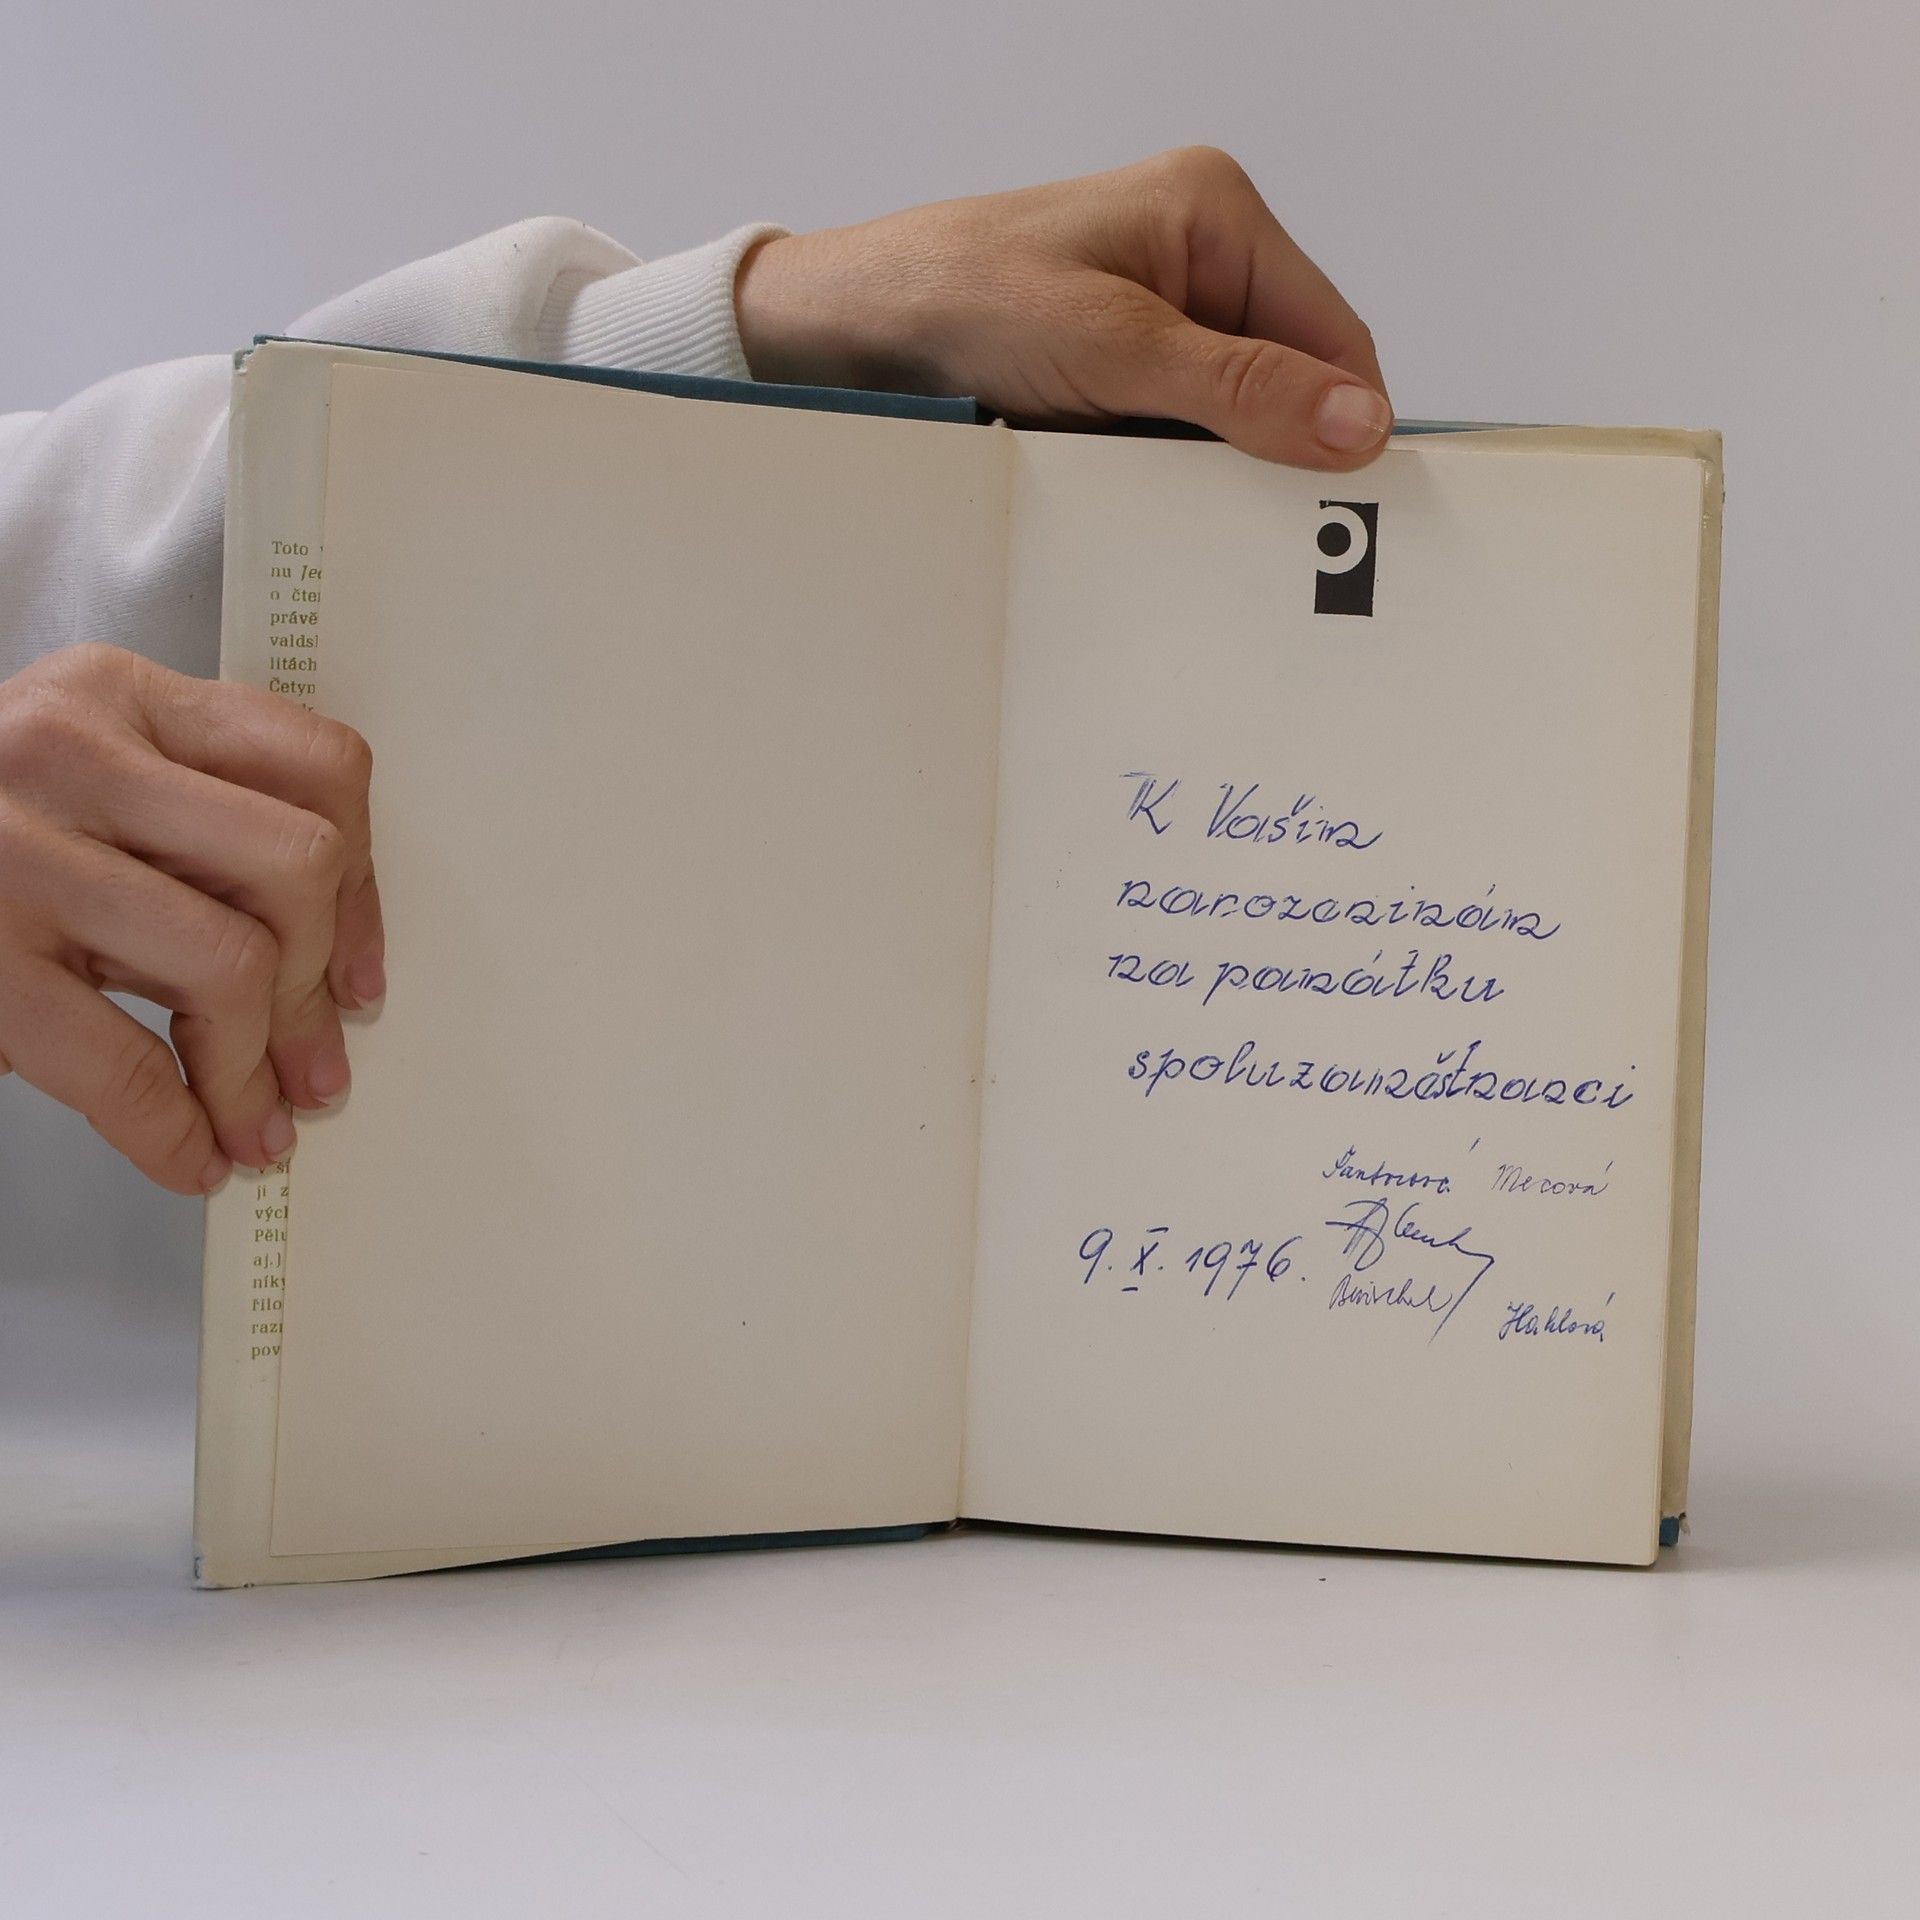 Toto
nu Jed
o čte
právě
valds
litách
Četyn
v ší
ji z
výcl
Pělu
aj.)
níky
řilo
razi
pov
K Vašim
narozeninám
na památku
spoluzaměstnanci
Mecová
9. X. 1976.
Hahlová